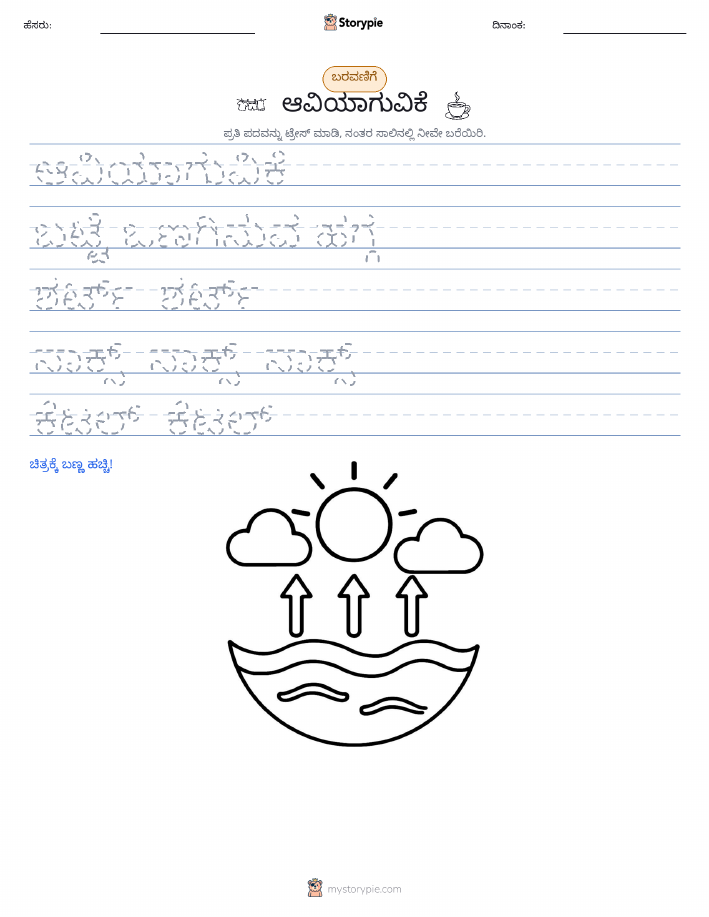 ಹೆಸರು:
Storypie
ದಿನಾಂಕ:
ಬರವಣಿಗೆ
ಆವಿಯಾಗುವಿಕೆ
ಪ್ರತಿ ಪದವನ್ನು ಟ್ರೇಸ್ ಮಾಡಿ, ನಂತರ ಸಾಲಿನಲ್ಲಿ ನೀವೇ ಬರೆಯಿರಿ.
ಆವಿಯಾಗುವಿಕೆ
ಬಟ್ಟೆ ಒಣಗಿಸುವ ಹಗ್ಗ
ಶರ್ಟ್ ಶರ್ಟ್
ಸಾಕ್ಸ್ ಸಾಕ್ಸ್ ಸಾಕ್ಸ್
ಕೆಟಲ್ ಕೆಟಲ್
ಚಿತ್ರಕ್ಕೆ ಬಣ್ಣ ಹಚ್ಚಿ!
mystorypie.com